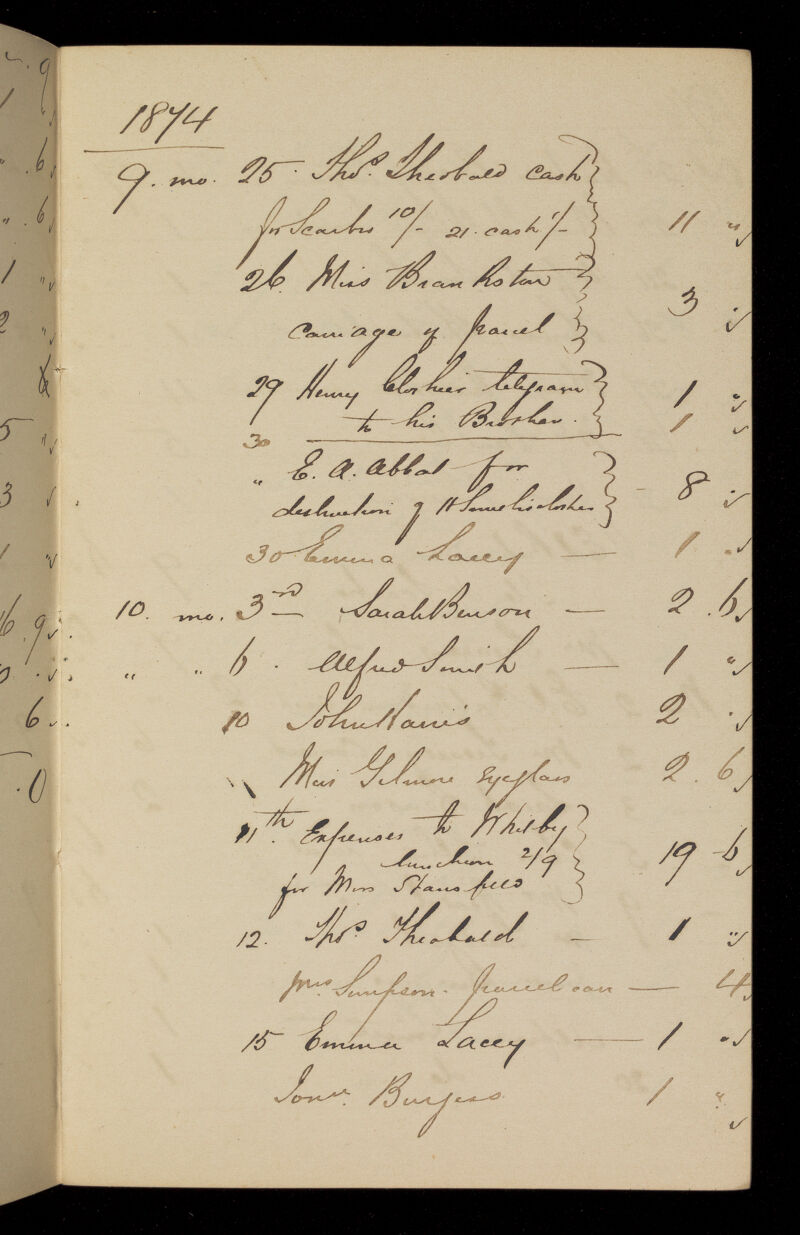 1874
9. mo. 25. Thos. Theobald cash
for Scarbro 10/- 21. cash 1/- 11 "
26. Miss Brankston
carriage of parcel 3 .
29 Henry telegram 1 "
to his Brother. 1
30
" E. A. Abbot for
destruction of H Smith's clothes - 8 .
30 Emma Lacey — 1 .
10. mo. 3rd — Sarah Benson — 2 . 6
" " 6 . Alfred Smith — 1 "
10 John Harris 2 .
" Miss Gilmore Eyeglass 2 . 6
11th. Expenses to Whitby
luncheon 2/9 19 - 6
for Miss Stansfield
12. Thos. Theobald — 1 "
Mrs. Simpson. parcel carr — 4
15 Emma Lacey — 1 "
Burgess 1 "